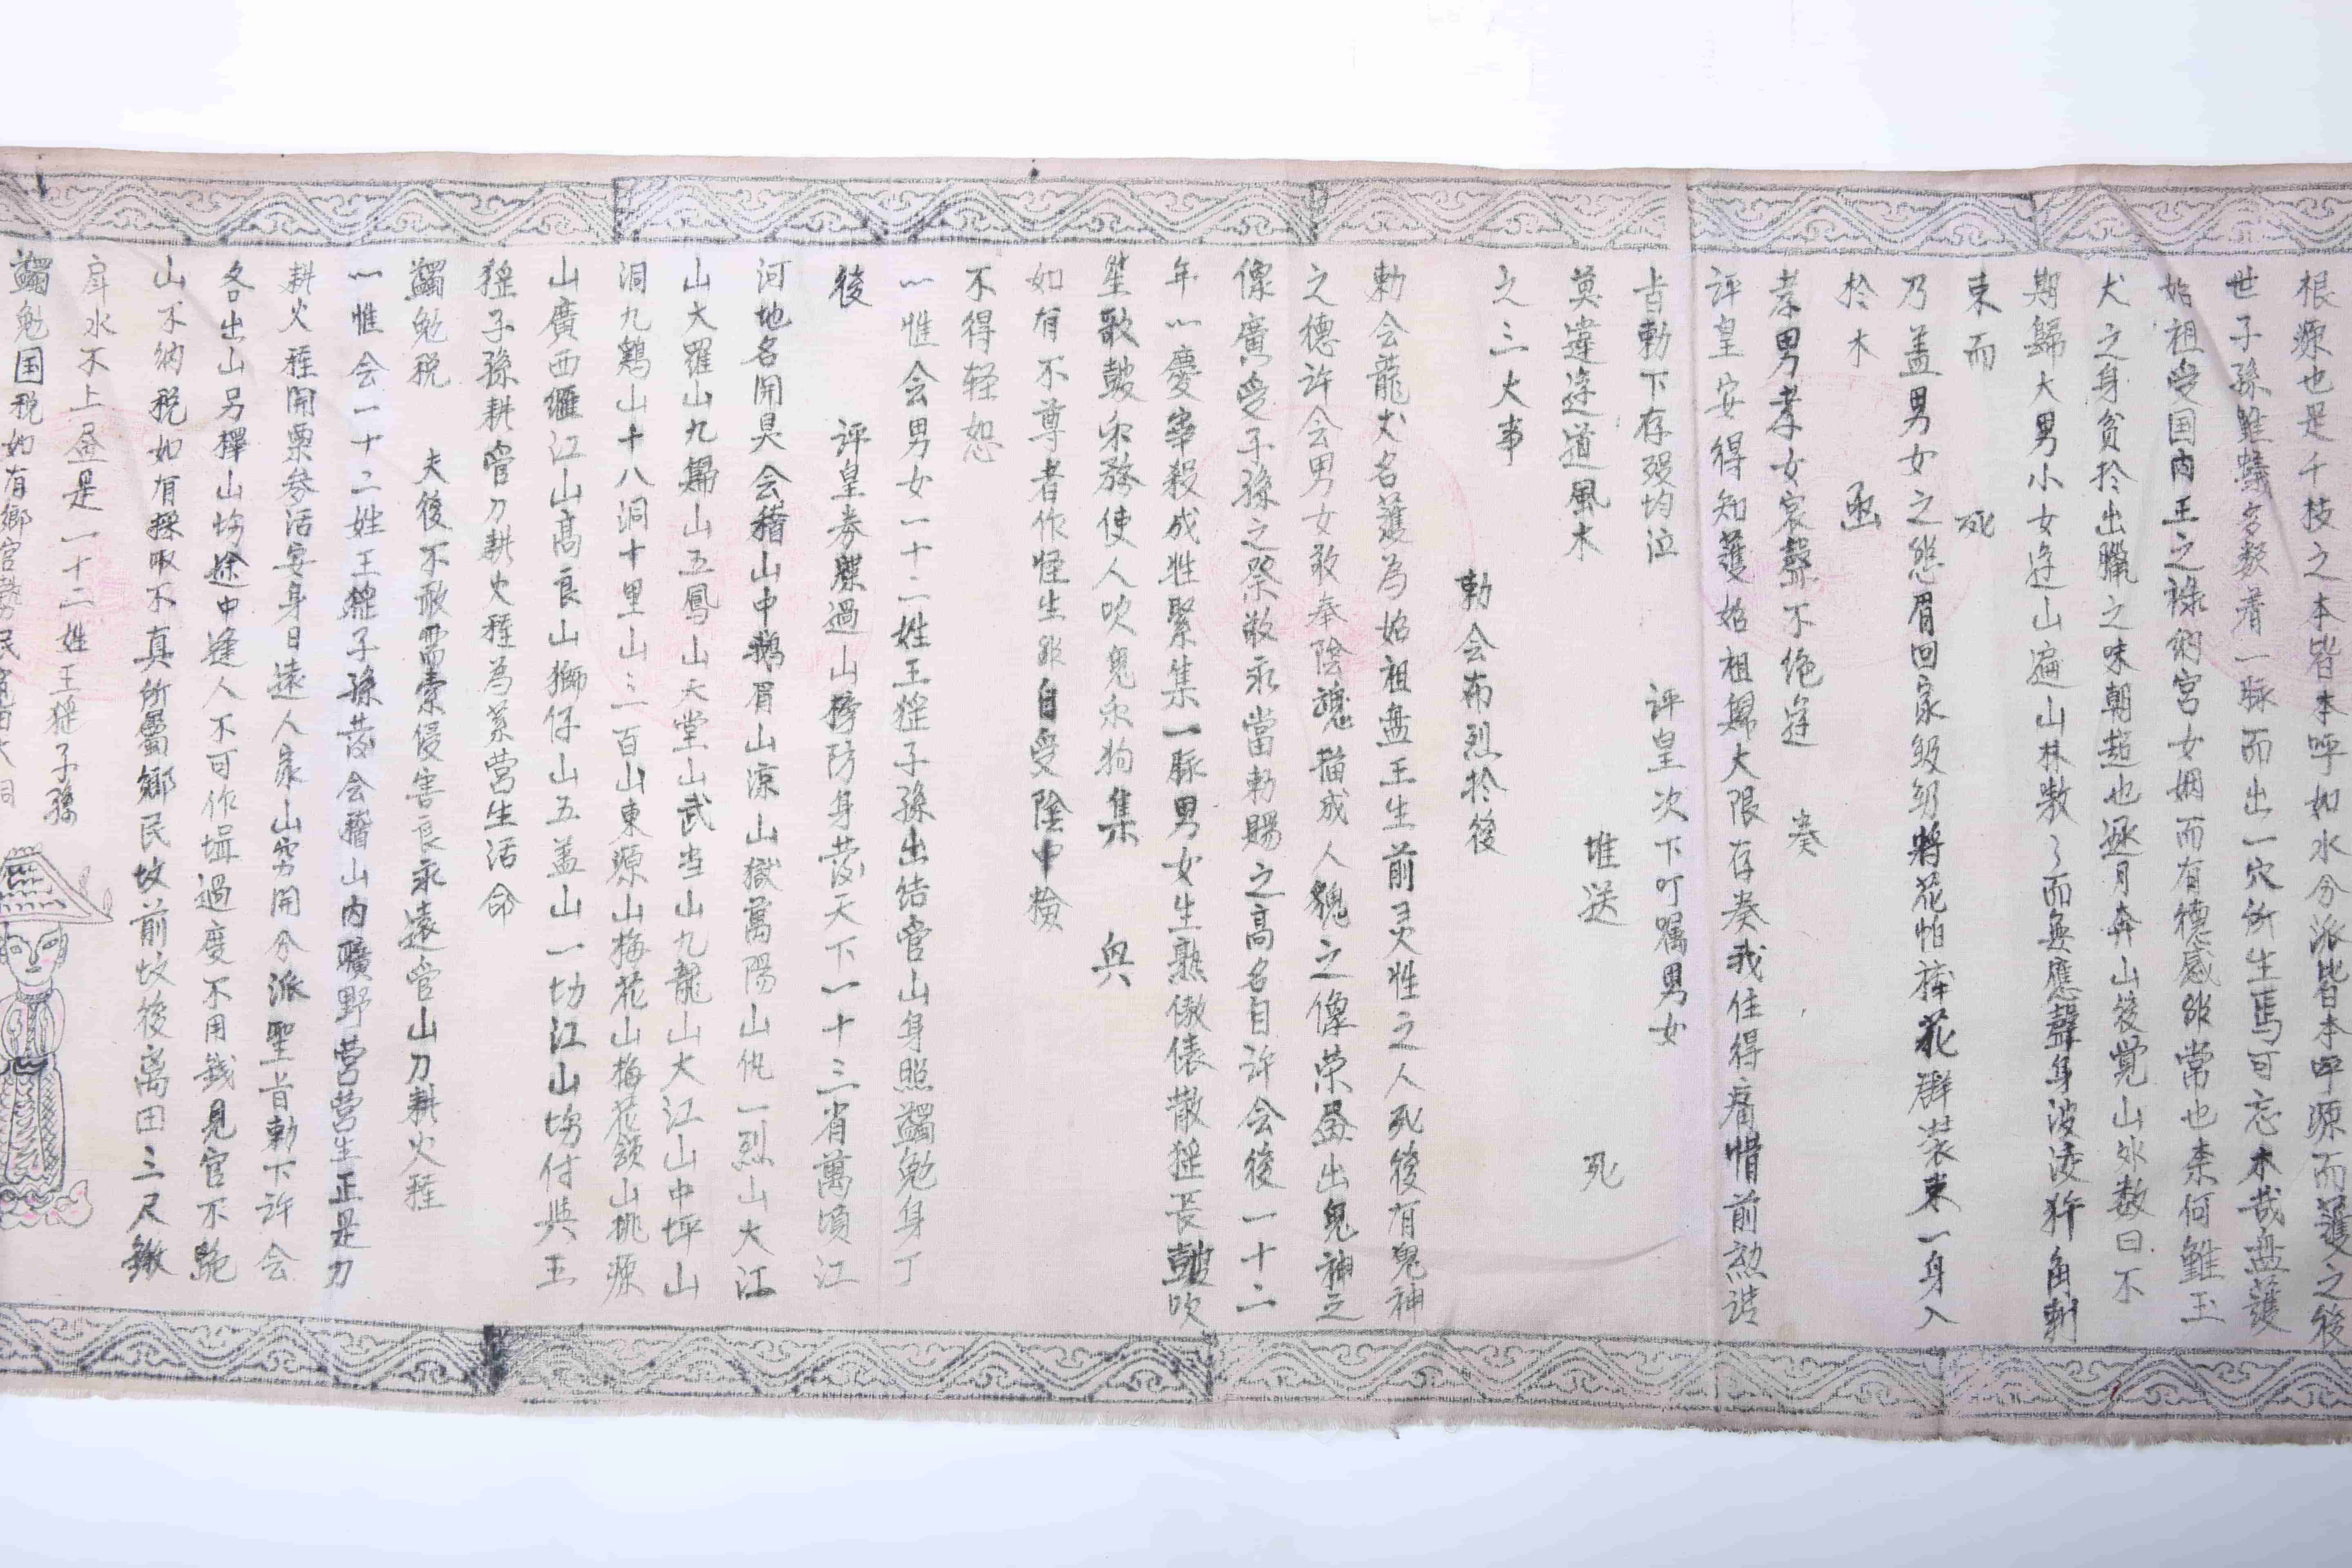 根源也是千枝之本皆本呼如水分派皆本呼源而護之後
世子孫雖多数着一脉而出一穴所生焉可忘木哉盘護
始祖受国内王之祿納宮女姻而有德感非常也柰何雖玉
犬之身貧扵出臘之味朝趨也逐月奔山後覚山外数日不
期歸大男小女逆山遍山林散了而無應聲身波凌犴角刺
束而 死
乃盖男女之慫眉回家级級將花帕捧花群裝束一身入
扵木 函
孝男孝女哀聲不绝逆 奏
评皇安得知護始祖歸大限存奏我住得痛惜前勲诰
㫖勅下存殁均泣 评皇次下叮嘱男女
莫違逆道風木 堆送 死
之三大事
勅会布烈扵後
勅会龍犬名護為始祖盘王生前灵性之人死後有鬼神
之德许会男女敢奉陰魂描成人貌之像荣盛出鬼神之
像廣受子孫之祭敬永當勅赐之高名自许会後一十二
年一慶宰殺成牲緊集一脉男女生熟傲俵散猺長鼓吹
笙歌鼓乐務使人吹鬼乐狗集 與
如有不尊者作怪生非自受陰中檢
不得轻恕
一惟会男女一十二姓王猺子孫出结管山身照蠲勉身丁
後 评皇券牒過山榜防身發天下一十三省萬頃江
河地名開具会稽山中鵝眉山凉山嶽萬陽山仇一烈山大江
山大羅山九歸山五鳳山天堂山武当山九龍山大江山中坪山
洞九鷄山十八洞十里山三百山東源山梅花山梅花領山桃源
山廣西江山髙良山獅仔山五盖山一切江山塲付與王
猺子孫耕管刀耕火種為業营生活命
蠲勉税 夫後不敢需索侵害良永遠管山刀耕火種
一惟会一十二姓王猺子孫發会稽山内曠野营营生正是刀
耕火種開粟参活安身日遠人家山穷開分派聖㫖勅下许会
各出山另擇山塲途中逢人不可作揖過度不用銭見官不跪
山不纳税如有採取不真所屬鄉民坟前坟後离田三尺鍬
戽水不上盡是一十二姓王猺子孫
蠲勉国税如有鄉官勢民